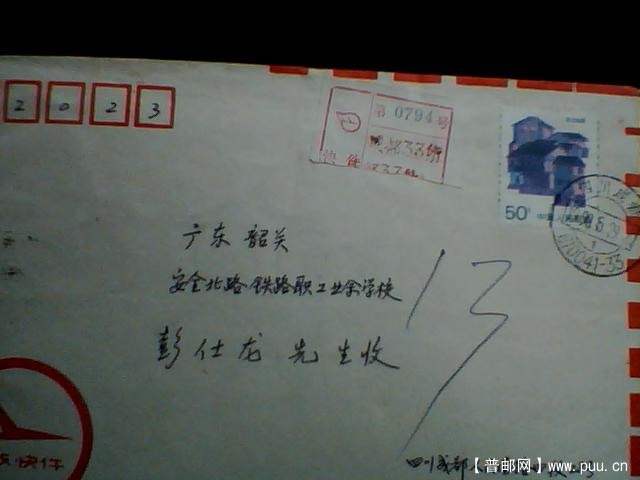 2 0 2 3
第 0794 号
快件
50分
610041-33
广东 韶关
安全北路 铁路职工业余学校
彭仕龙 先生收
13
快件
四川成都
【普邮网】www.puu.cn